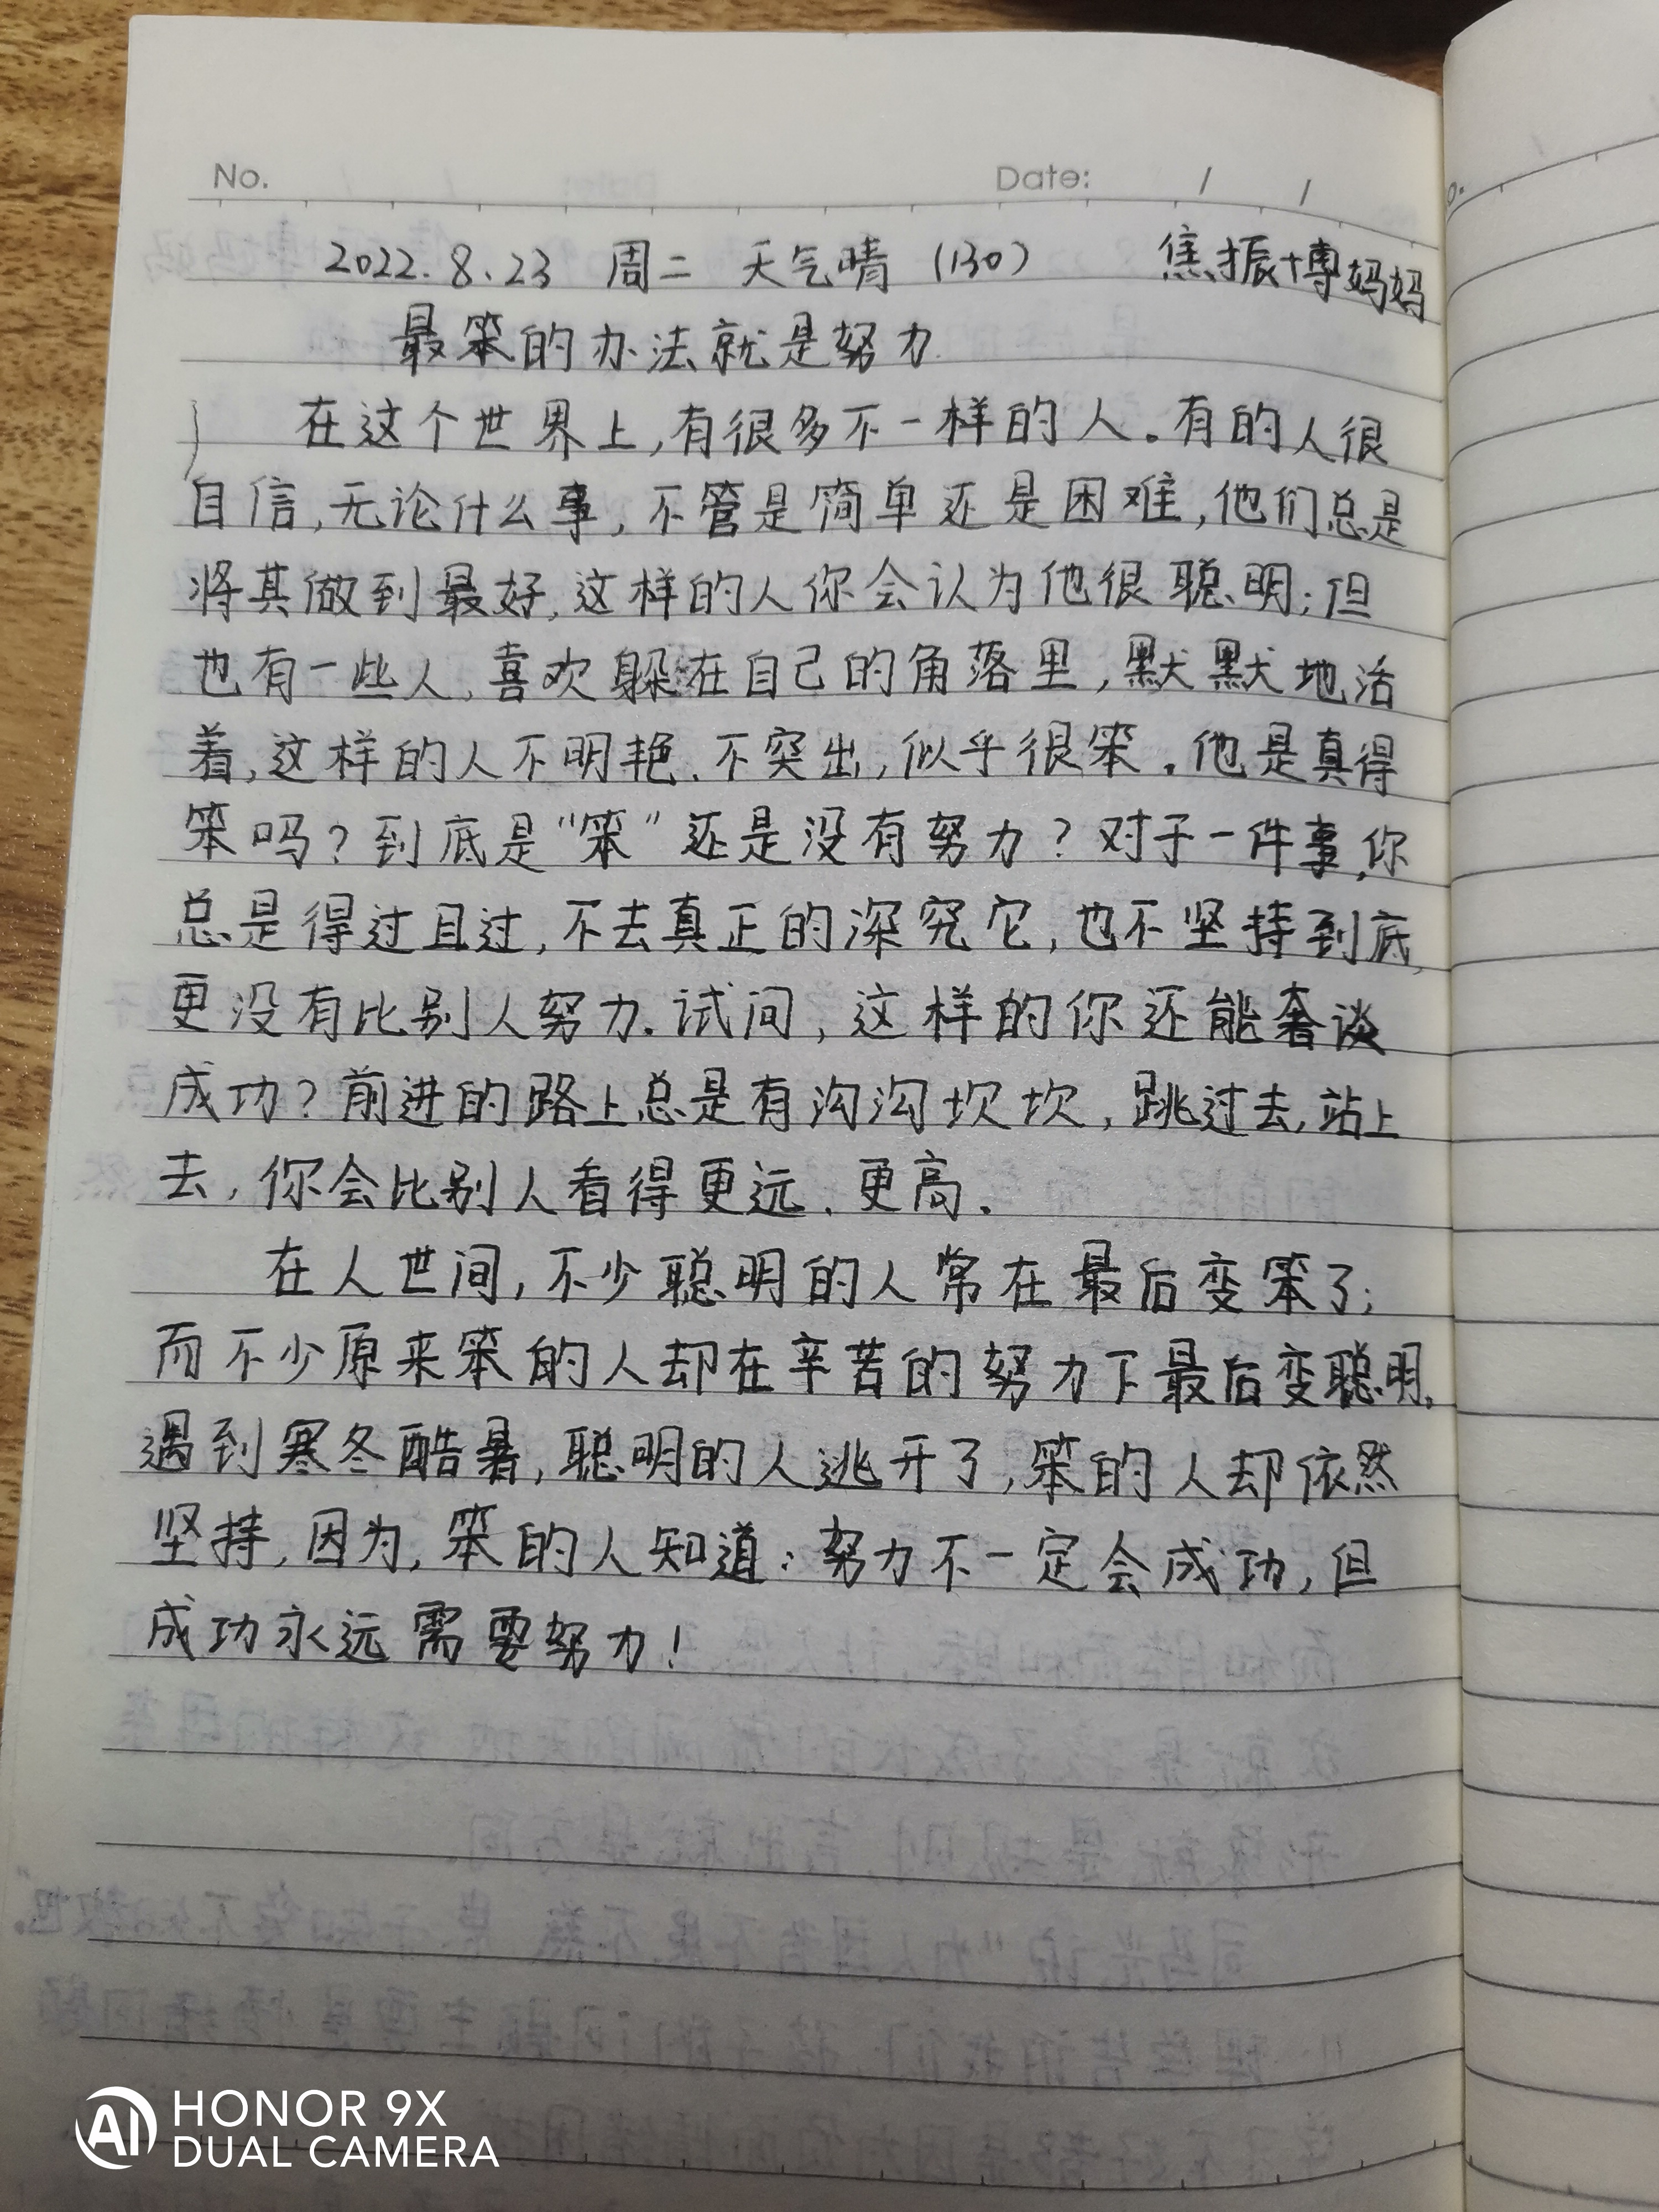 No.
Date: / /
2022.8.23 周二 天气晴 (130) 焦振博妈妈
最笨的办法就是努力
在这个世界上,有很多不一样的人。有的人很
自信,无论什么事,不管是简单还是困难,他们总是
将其做到最好,这样的人你会认为他很聪明;但
也有一些人,喜欢躲在自己的角落里,默默地活
着,这样的人不明艳、不突出,似乎很笨。他是真得
笨吗?到底是“笨”还是没有努力?对于一件事,你
总是得过且过,不去真正的深究它,也不坚持到底,
更没有比别人努力.试问,这样的你还能奢谈
成功?前进的路上总是有沟沟坎坎,跳过去,站上
去,你会比别人看得更远、更高.
在人世间,不少聪明的人常在最后变笨了;
而不少原来笨的人却在辛苦的努力下最后变聪明。
遇到寒冬酷暑,聪明的人逃开了,笨的人却依然
坚持,因为,笨的人知道:努力不一定会成功,但
成功永远需要努力!
AI HONOR 9X
DUAL CAMERA